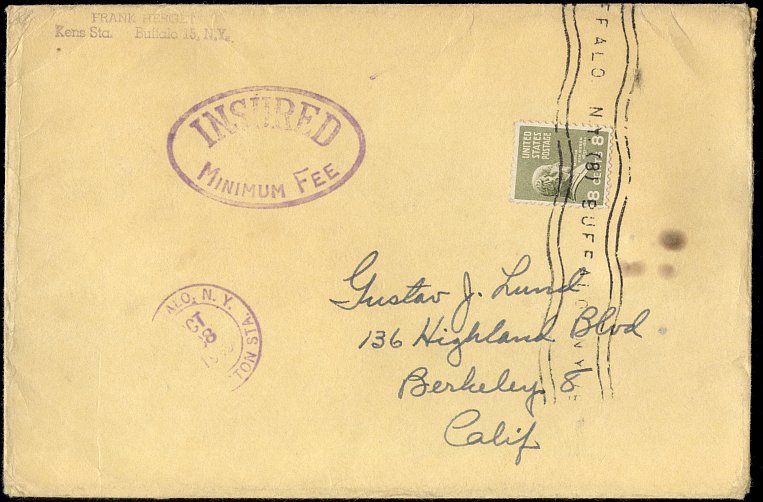 FRANK HERGET
Kens Sta. Buffalo 15, N.Y.
INSURED
MINIMUM FEE
UNITED
STATES
POSTAGE
8 CENTS 8
FFALO N.Y. (8) BUFFALO N.Y.
Gustav J. Lund
136 Highland Blvd
Berkeley 8
Calif.
ALO, N. Y.
CT
8
TON STA.